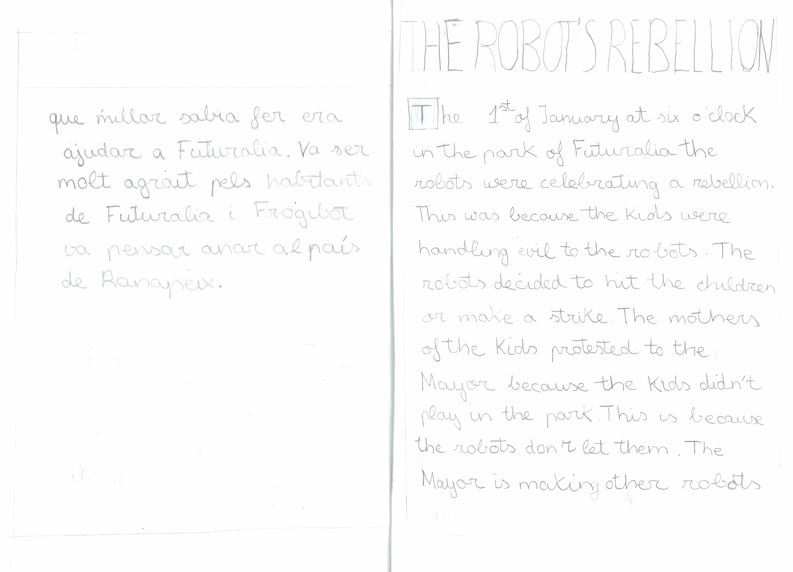 que millor sabia fer era
ajudar a Futuralia. Va ser
molt agraït pels habitants
de Futuralia i Frogibot
va pensar anar al país
de Ranapeix.
THE ROBOT'S REBELLION
The 1st of January at six o'clock
in the park of Futuralia the
robots were celebrating a rebellion.
This was because the kids were
handling evil to the robots. The
robots decided to hit the children
or make a strike. The mothers
of the kids protested to the
Mayor because the kids didn't
play in the park. This is because
the robots don't let them. The
Mayor is making other robots